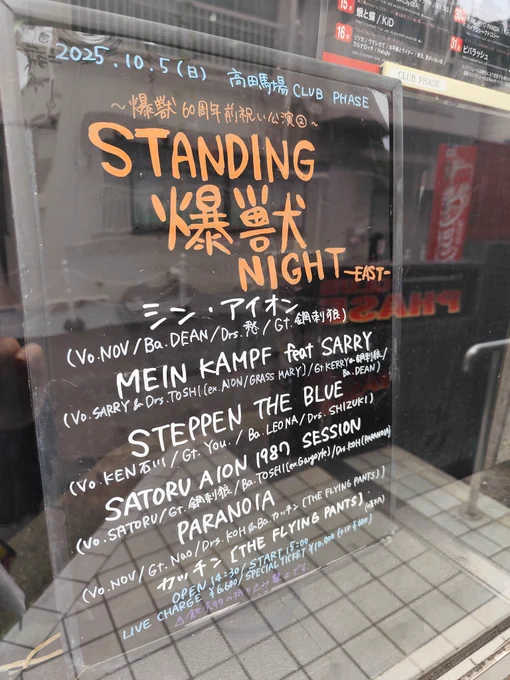 15
蛾と蝶 / KiD
16
31
ビバラッシュ
CLUB PHASE
2025.10.5(日) 高田馬場 CLUB PHASE
～爆獣 60周年前祝い公演②～
STANDING
爆獣
NIGHT -EAST-
シン・アイオン
(Vo. NOV / Ba. DEAN / Drs. 愁 / Gt. 鋼刺狼)
MEIN KAMPF feat SARRY
(Vo. SARRY & Drs. TOSHI (ex. AION/GRASS MARY) / Gt. KERRY & 鋼刺狼 / Ba. DEAN)
STEPPEN THE BLUE
(Vo. KEN石川 / Gt. You. / Ba. LEONA / Drs. SHIZUKI)
SATORU AION 1987 SESSION
(Vo. SATORU / Gt. 鋼刺狼 / Ba. TOSHI (ex. Gargoyle) / Drs. KOH (PARANOIA))
PARANOIA
(Vo. NOV / Gt. Nao / Drs. KOH & Ba. カッチン [THE FLYING PANTS])
カッチン [THE FLYING PANTS]
OPEN 14:30 / START 15:00
LIVE CHARGE ¥6,600 / SPECIAL TICKET ¥10,000 (+1D ¥600)
PHASE